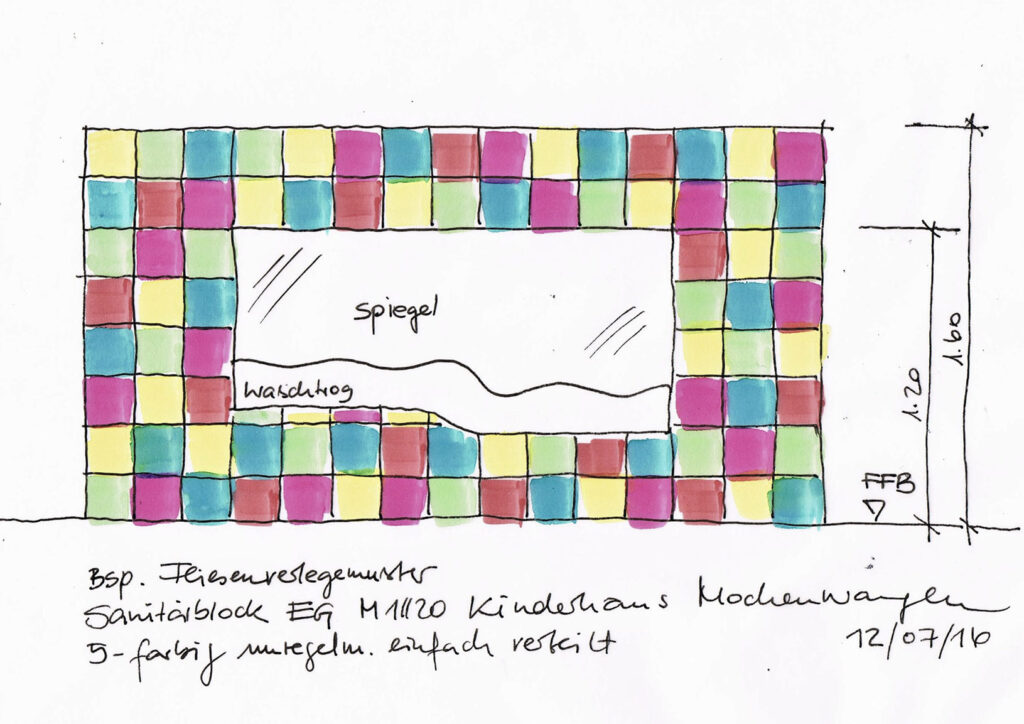 Spiegel
Waschtrog
1.20
1.60
FFB
Bsp. Fliesenverlegemuster
Sanitärblock EG M 1:20 Kinderhaus Mochenwangen
5-farbig unregelm. einfach verteilt
12/07/16